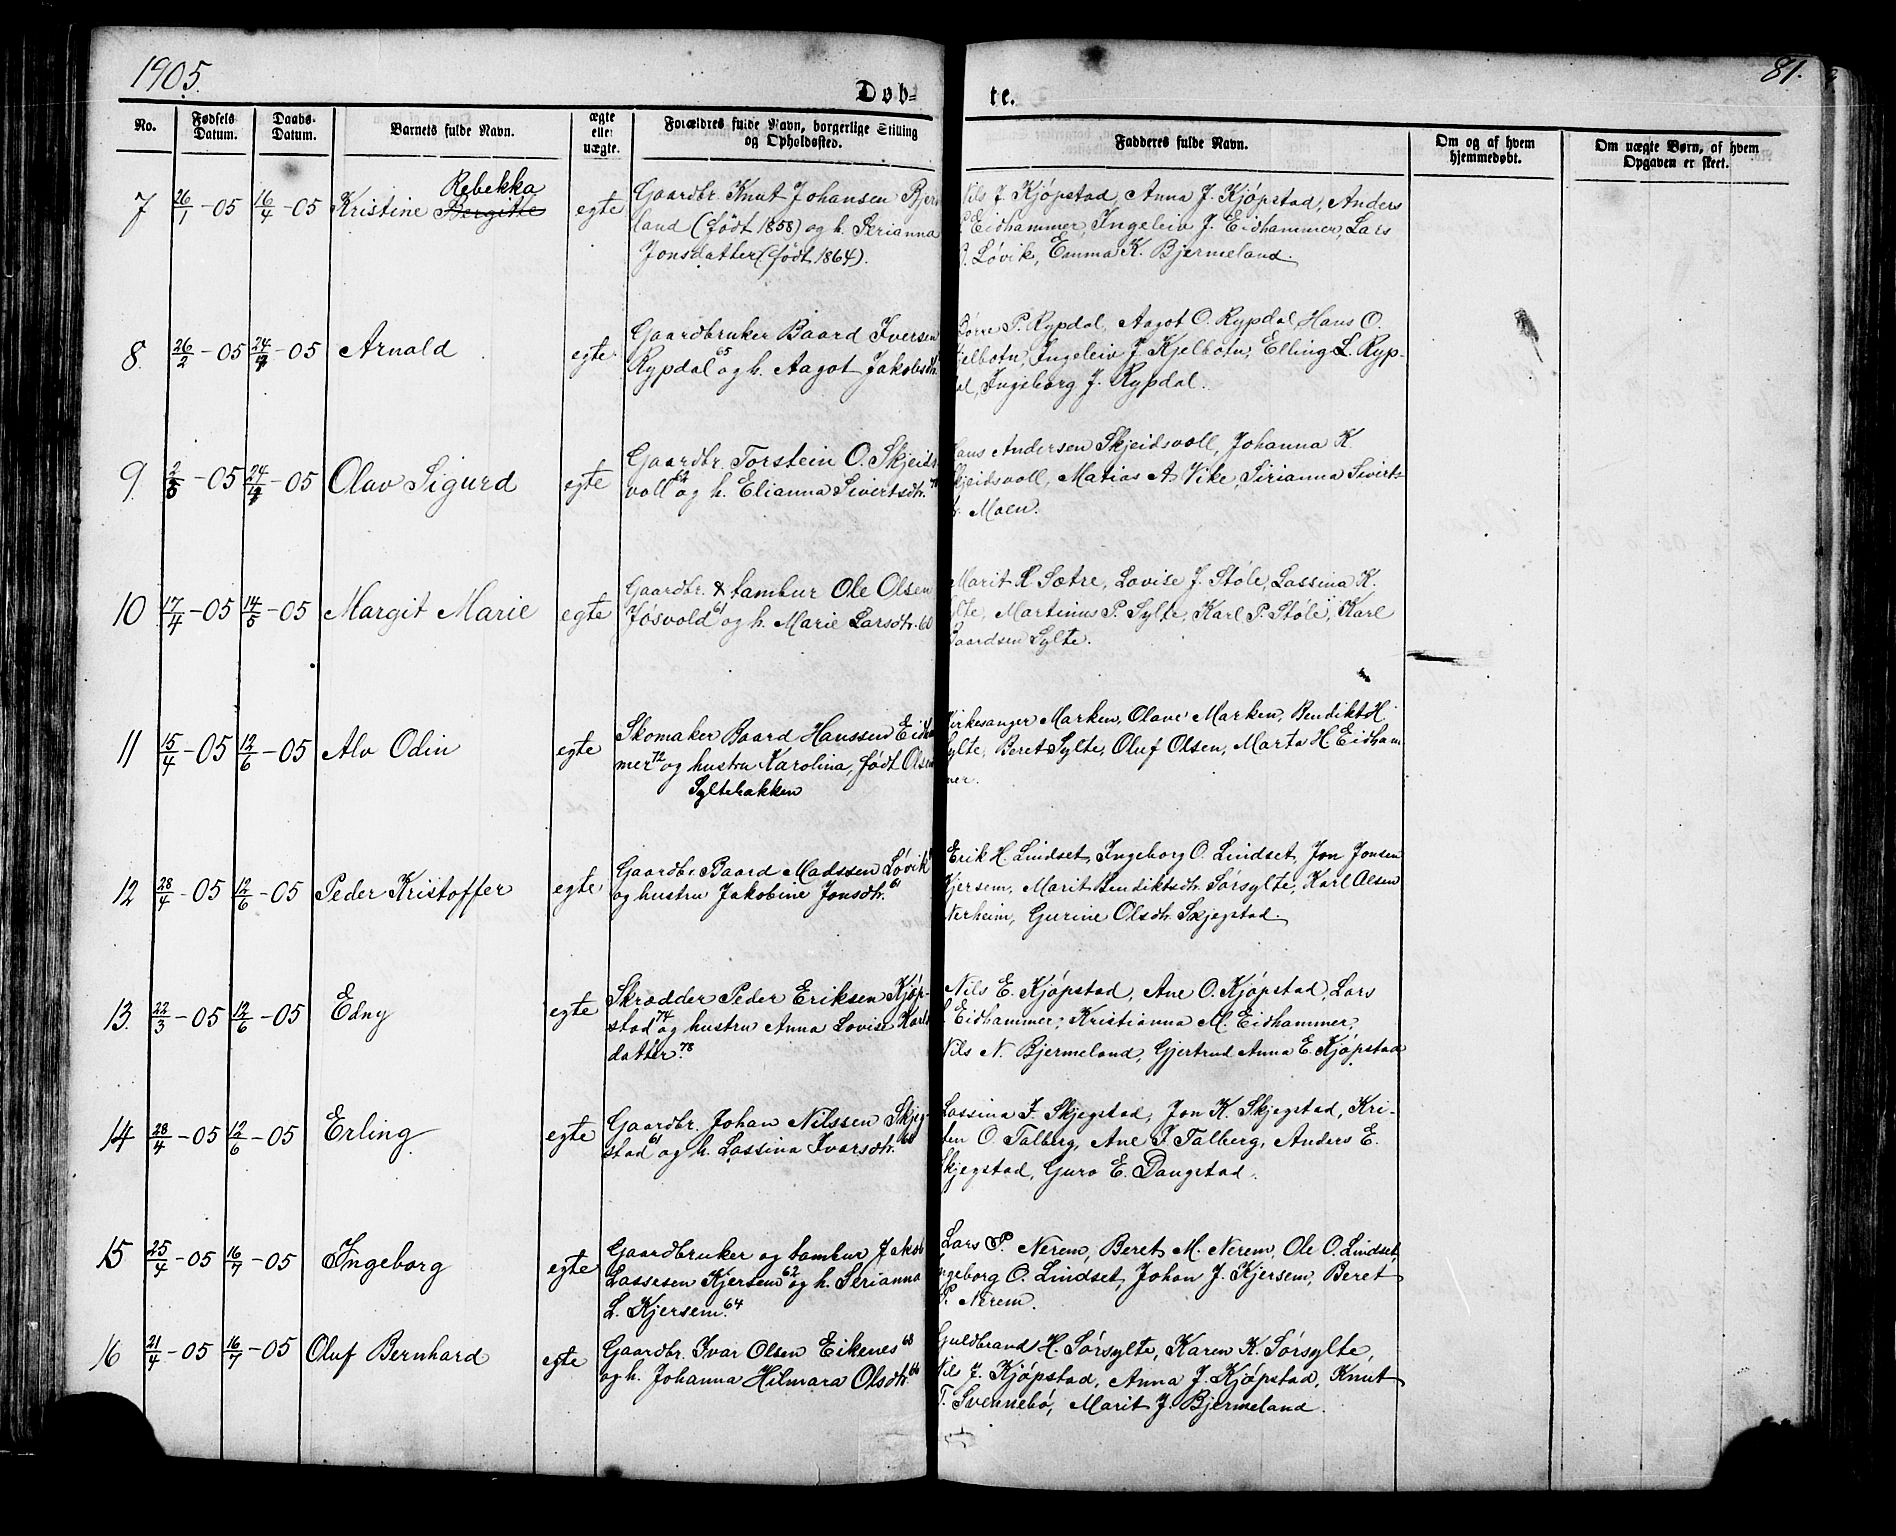 1905.
81.
Døb-
te.
No.
Fødsels Datum.
Daabs-Datum.
Barnets fulde Navn.
ægte eller uægte.
Forældres fulde Navn, borgerlige Stilling og Opholdssted.
Fadderes fulde Navn.
Om og af hvem hjemmedøbt.
Om uægte Børn, af hvem Opgaven er skeet.
7 26/1 - 05 16/4 - 05 Kristine Bergitte Rebekka egte
Gaardbr. Knut Johansen Bjer
land (født 1858) og h. Serianna
Jonsdatter (født 1864).
Nils J. Kjøpstad, Anna J. Kjøpstad, Anders
Eidhammer, Ingeleiv J. Eidhammer, Lars
Løvik, Emma K. Bjermeland.
8. 26/2 - 05 24/4 - 05 Arnald egte
Gaardbruker Baard Iversen
Rypdal 65 og h. Aagot Jakobsdtr.
P. Rypdal, Aagot O. Rypdal, Hans O.
jelbotn, Ingeleiv J. Kjelbotn, Elling L. Ryp-
dal, Ingeborg J. Rypdal.
9. 2/3 - 05 24/4 - 05 Olav Sigurd egte
Gaardbr. Torstein O. Skjeids
voll og h. Elianna Sivertsdtr.
Hans Andersen Skjeidsvoll, Johanna K
Skjeidsvoll, Matias A. Vike, Sirianna Siverts-
Moen.
10 17/4 - 05 14/5 - 05 Margit Marie egte
Gaardbr. & tambur Ole Olsen
Jøsvold 61 og h. Marie Larsdtr. 60
Marit K. Sætre, Lovise J. Støle, Lassina K.
lte, Martinus P. Sylte, Karl P. Støle, Karl
Baardsen Sylte.
11 15/4 - 05 12/6 - 05 Alv Odin egte
Skomaker Baard Hanssen Eidham
mer 72 og hustru Karolina, født Olsen
Syltebakken
Kirkesanger Marken, Olave Marken, Bendikt H
Sylte, Beret Sylte, Oluf Olsen, Marta H Eidham
mer.
12 28/4 - 05 12/6 - 05 Peder Kristoffer egte
Gaardbr. Baard Madssen Løvik
og hustru Jakobine Jonsdtr. 61
Erik H. Lindset, Ingeborg O. Lindset, Jon Jonsen
Kjersem, Marit Bendiktsdtr. Sørsylte, Karl Olsen
Nerheim, Gurine Olsdtr. Skjegstad.
13. 22/3 - 05 12/6 - 05 Edny egte
Skrædder Peder Eriksen Kjøp-
stad 74 og hustru Anna Lovise Karls
datter. 78
Nils E. Kjøpstad, Ane O. Kjøpstad, Lars
Eidhammer, Kristianna M. Eidhammer,
Nils N. Bjermeland, Gjertrud Anna E. Kjøpstad
14 28/4 - 05 12/6 - 05 Erling egte
Gaardbr. Johan Nilssen Skjeg-
stad 61 og h. Lassina Ivarsdtr. 68
Lassina I. Skjegstad, Jon K. Skjegstad, Kri-
sten O. Talberg, Ane I. Talberg, Anders E.
Skjegstad, Guro E. Daugstad.
15 25/4 - 05 16/7 - 05 Ingeborg egte
Gaardbruker og tambur Jakob
Lassesen Kjersem 62 og h. Serianna
L. Kjersem. 64
Lars P. Nerem, Beret M. Nerem, Ole O. Lindset,
Ingeborg O. Lindset, Johan J. Kjersem, Beret
P. Nerem.
16 21/4 - 05 16/7 - 05 Oluf Bernhard egte
Gaardbr. Ivar Olsen Eikenes 68
og h. Johanna Hilmara Olsdtr. 66
Guldbrand H. Sørsylte, Karen K. Sørsylte,
Nils J. Kjøpstad, Anna J. Kjøpstad, Knut
T. Svennebø, Marit J. Bjermeland.